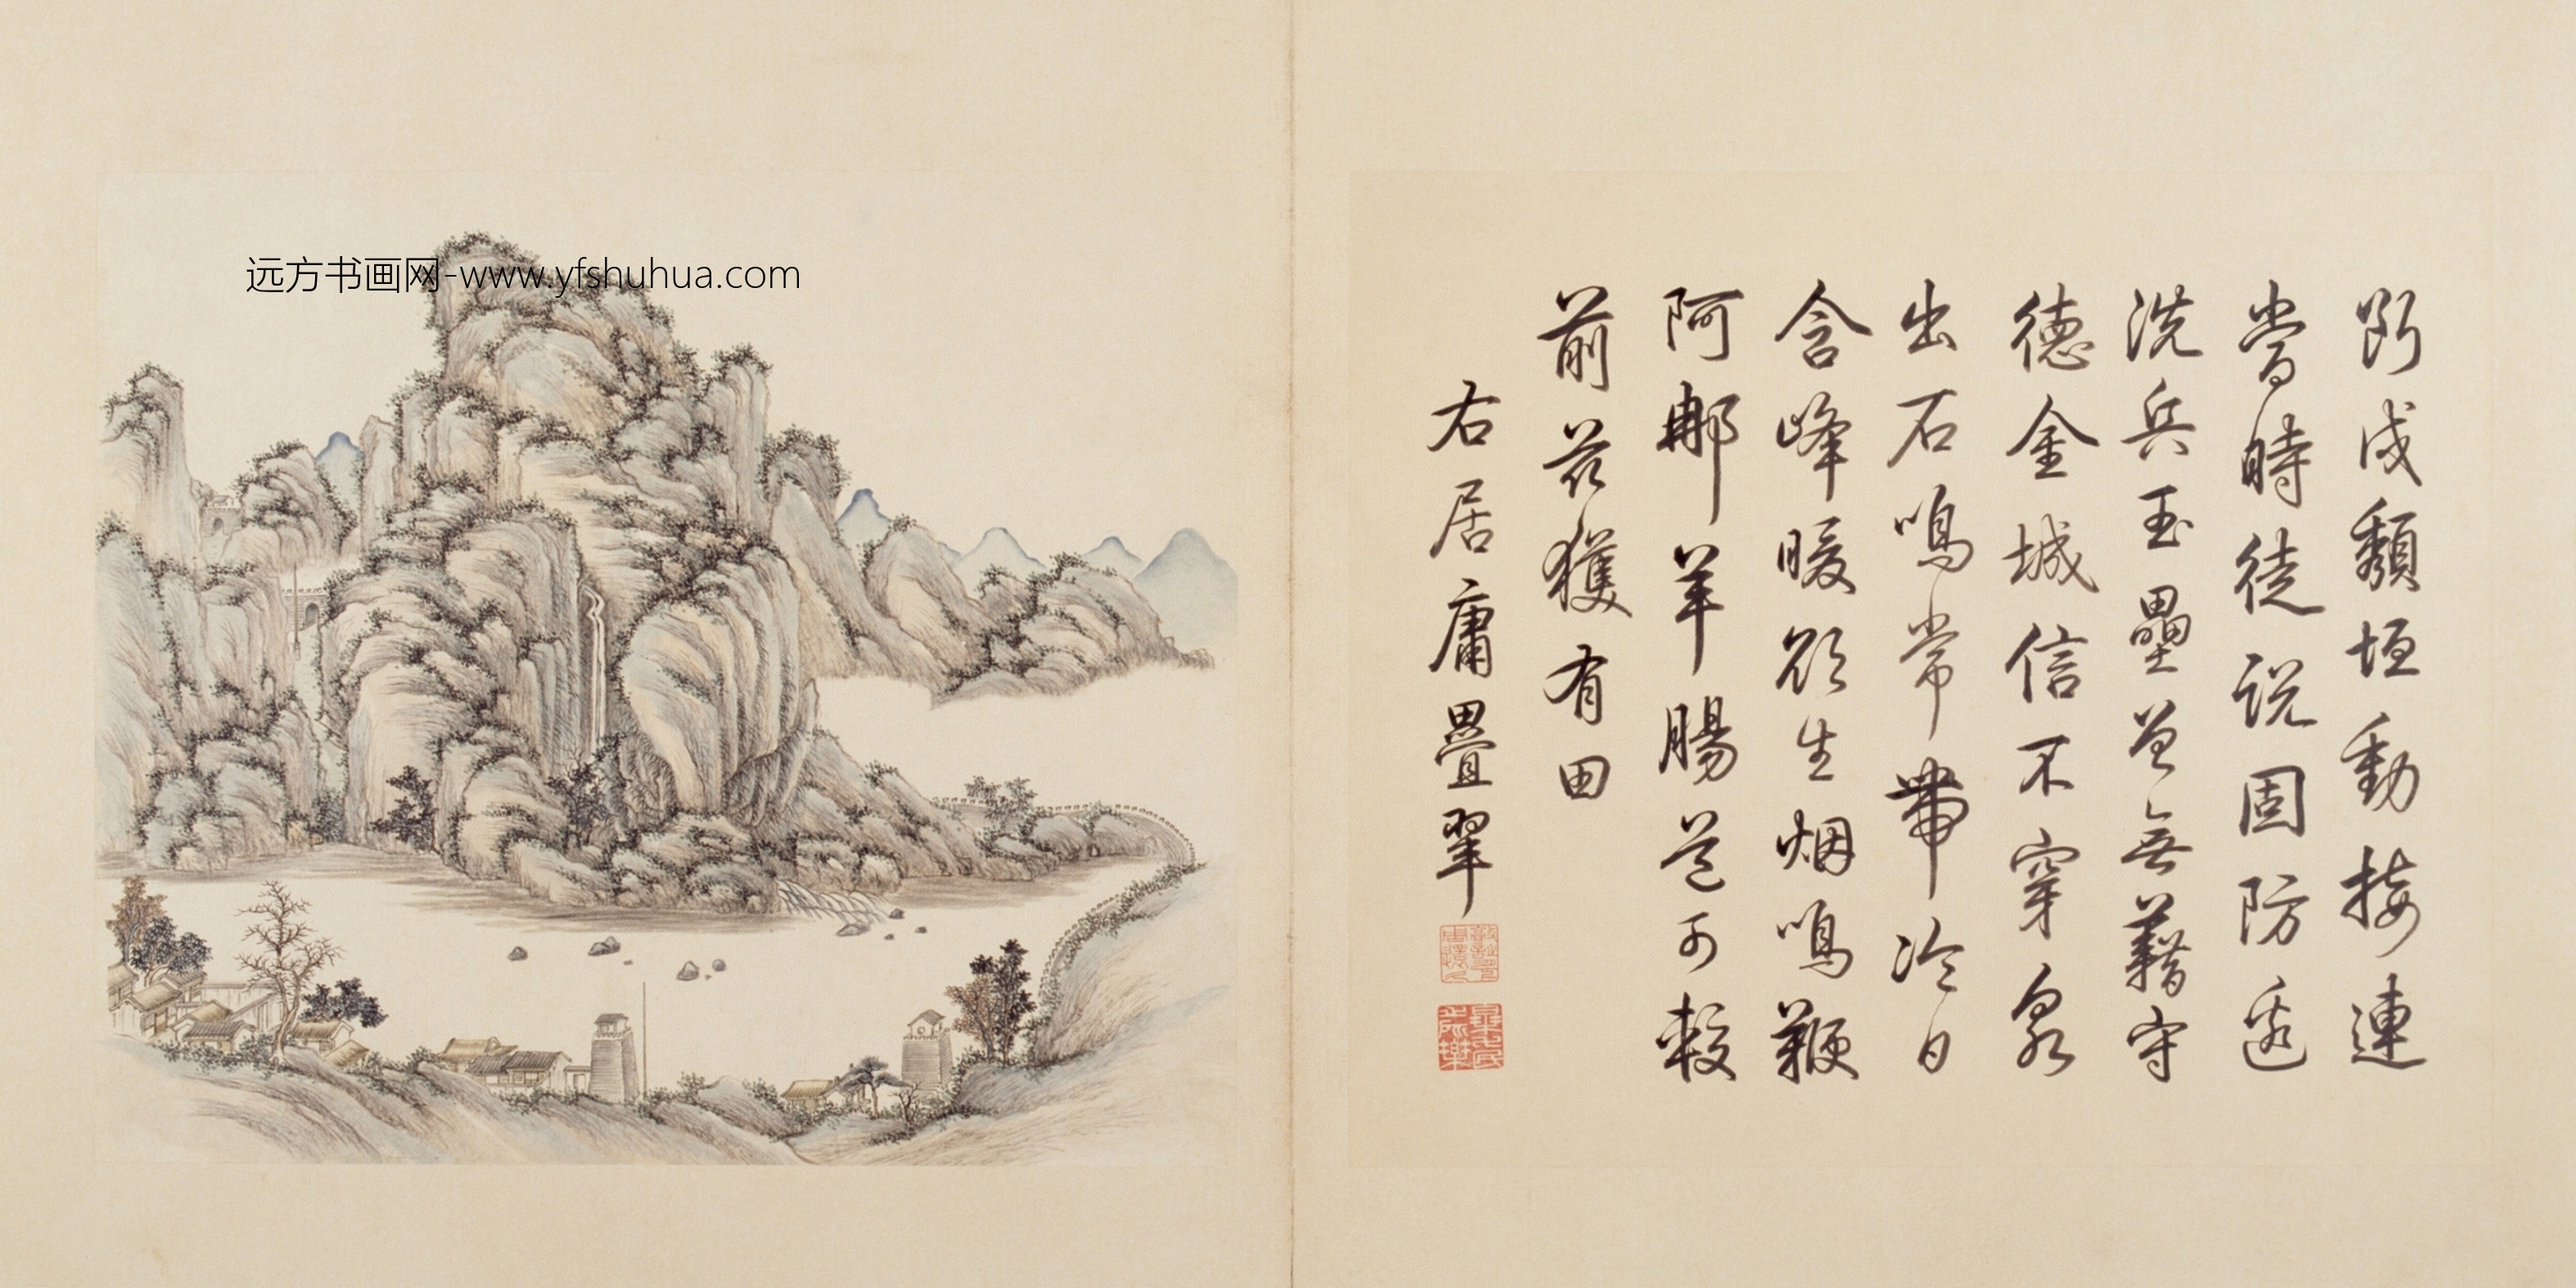 远方书画网-www.yfshuhua.com
斷戍頹垣動接連
當時徒説固防邊
洗兵玉壘曾無藉守
德金城信不穿泉
出石鳴常帶冷日
含峰暖欲生烟鳴鞭
阿那羊腸道可較
前茲獲有田
右居庸疊翠